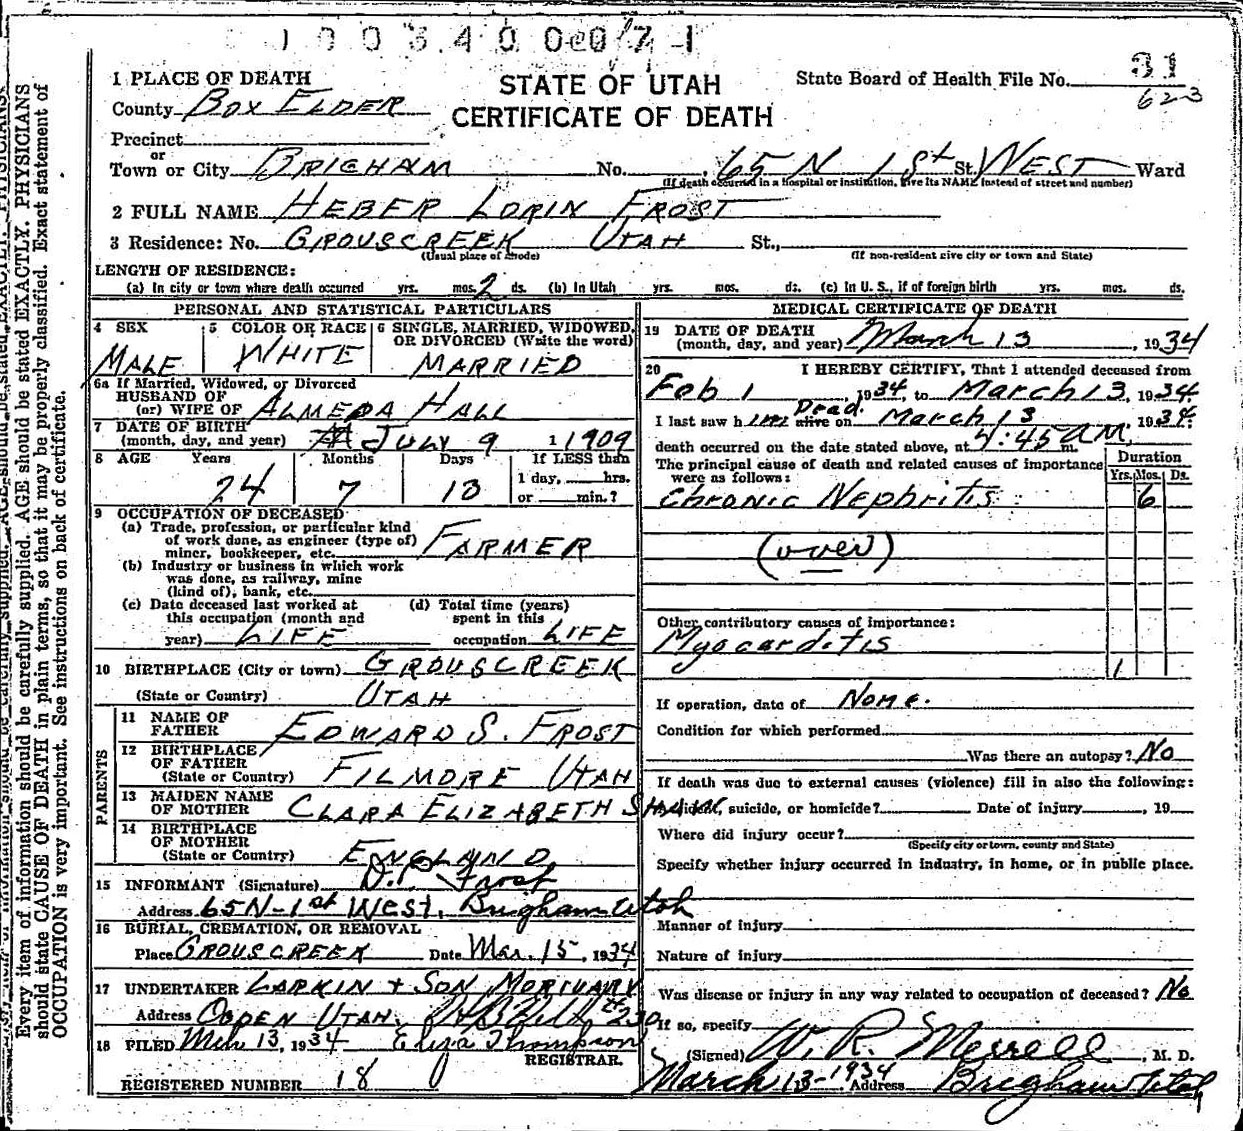 1003400
071
1 PLACE OF DEATH
STATE OF UTAH
State Board of Health File No. 31
County BOX ELDER
CERTIFICATE OF DEATH
623
Precinct
or
Town or City BRIGHAM No. 65 N 1St St. WEST Ward
(If death occurred in a hospital or institution, give its NAME instead of street and number)
2 FULL NAME HEBER LORIN FROST
3 Residence: No. GROUSCREEK UTAH St.,
(Usual place of abode) (If non-resident give city or town and State)
LENGTH OF RESIDENCE:
(a) In city or town where death occurred yrs. mos. 2 ds. (b) In Utah yrs. mos. ds. (c) In U. S., if of foreign birth yrs. mos. ds.
PERSONAL AND STATISTICAL PARTICULARS
4 SEX 5 COLOR OR RACE 6 SINGLE, MARRIED, WIDOWED,
OR DIVORCED (Write the word)
MALE WHITE MARRIED
6a If Married, Widowed, or Divorced
HUSBAND OF
(or) WIFE OF ALMEDA HALL
7 DATE OF BIRTH
(month, day, and year) JULY 9 1 1909
8 AGE Years Months Days If LESS than
1 day, hrs.
24 7 13 or min.?
9 OCCUPATION OF DECEASED
(a) Trade, profession, or particular kind
of work done, as engineer (type of)
miner, bookkeeper, etc. FARMER
(b) Industry or business in which work
was done, as railway, mine
(kind of), bank, etc.
(c) Date deceased last worked at (d) Total time (years)
this occupation (month and spent in this
year) LIFE occupation LIFE
10 BIRTHPLACE (City or town) GROUSCREEK
(State or Country) UTAH
PARENTS
11 NAME OF
FATHER EDWARD S. FROST
12 BIRTHPLACE
OF FATHER
(State or Country) FILMORE UTAH
13 MAIDEN NAME
OF MOTHER CLARA ELIZABETH SHAW
14 BIRTHPLACE
OF MOTHER
(State or Country) ENGLAND
15 INFORMANT (Signature) D.P. Frost
Address 65 N - 1st West, Brigham Utah
16 BURIAL, CREMATION, OR REMOVAL
Place GROUSCREEK Date Mar. 15, 1934
17 UNDERTAKER LARKIN + SON MORTUARY
Address OGDEN UTAH. #230
18 FILED Mch 13, 1934 Eliza Thompson
REGISTRAR.
REGISTERED NUMBER 18
MEDICAL CERTIFICATE OF DEATH
19 DATE OF DEATH
(month, day, and year) March 13, 1934
20 I HEREBY CERTIFY, That I attended deceased from
Feb 1, 1934, to March 13, 1934
I last saw h im Dead alive on March 13 1934.
death occurred on the date stated above, at 4:45 AM. m.
The principal cause of death and related causes of importance
were as follows:
Duration
Yrs. Mos. Ds.
Chronic Nephritis 6
(over)
Other contributory causes of importance:
Myocarditis 1
If operation, date of None.
Condition for which performed
Was there an autopsy? No
If death was due to external causes (violence) fill in also the following:
Accident, suicide, or homicide? Date of injury , 19
Where did injury occur?
(Specify city or town, county and State)
Specify whether injury occurred in industry, in home, or in public place.
Manner of injury
Nature of injury
Was disease or injury in any way related to occupation of deceased? No
If so, specify
(Signed) W. R. Merrell, M. D.
March 13-1934 Address Brigham Utah
Every item of information should be carefully supplied. AGE should be stated EXACTLY. PHYSICIANS
should state CAUSE OF DEATH in plain terms, so that it may be properly classified. Exact statement of
OCCUPATION is very important. See instructions on back of certificate.